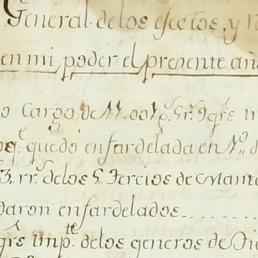 General de los efectos, y
en mi poder el presente añ
o Cargo de
quedó enfardelada en
rr.s de los 5 Tercios de Mante
daron enfardelados......
imp.te de los generos de